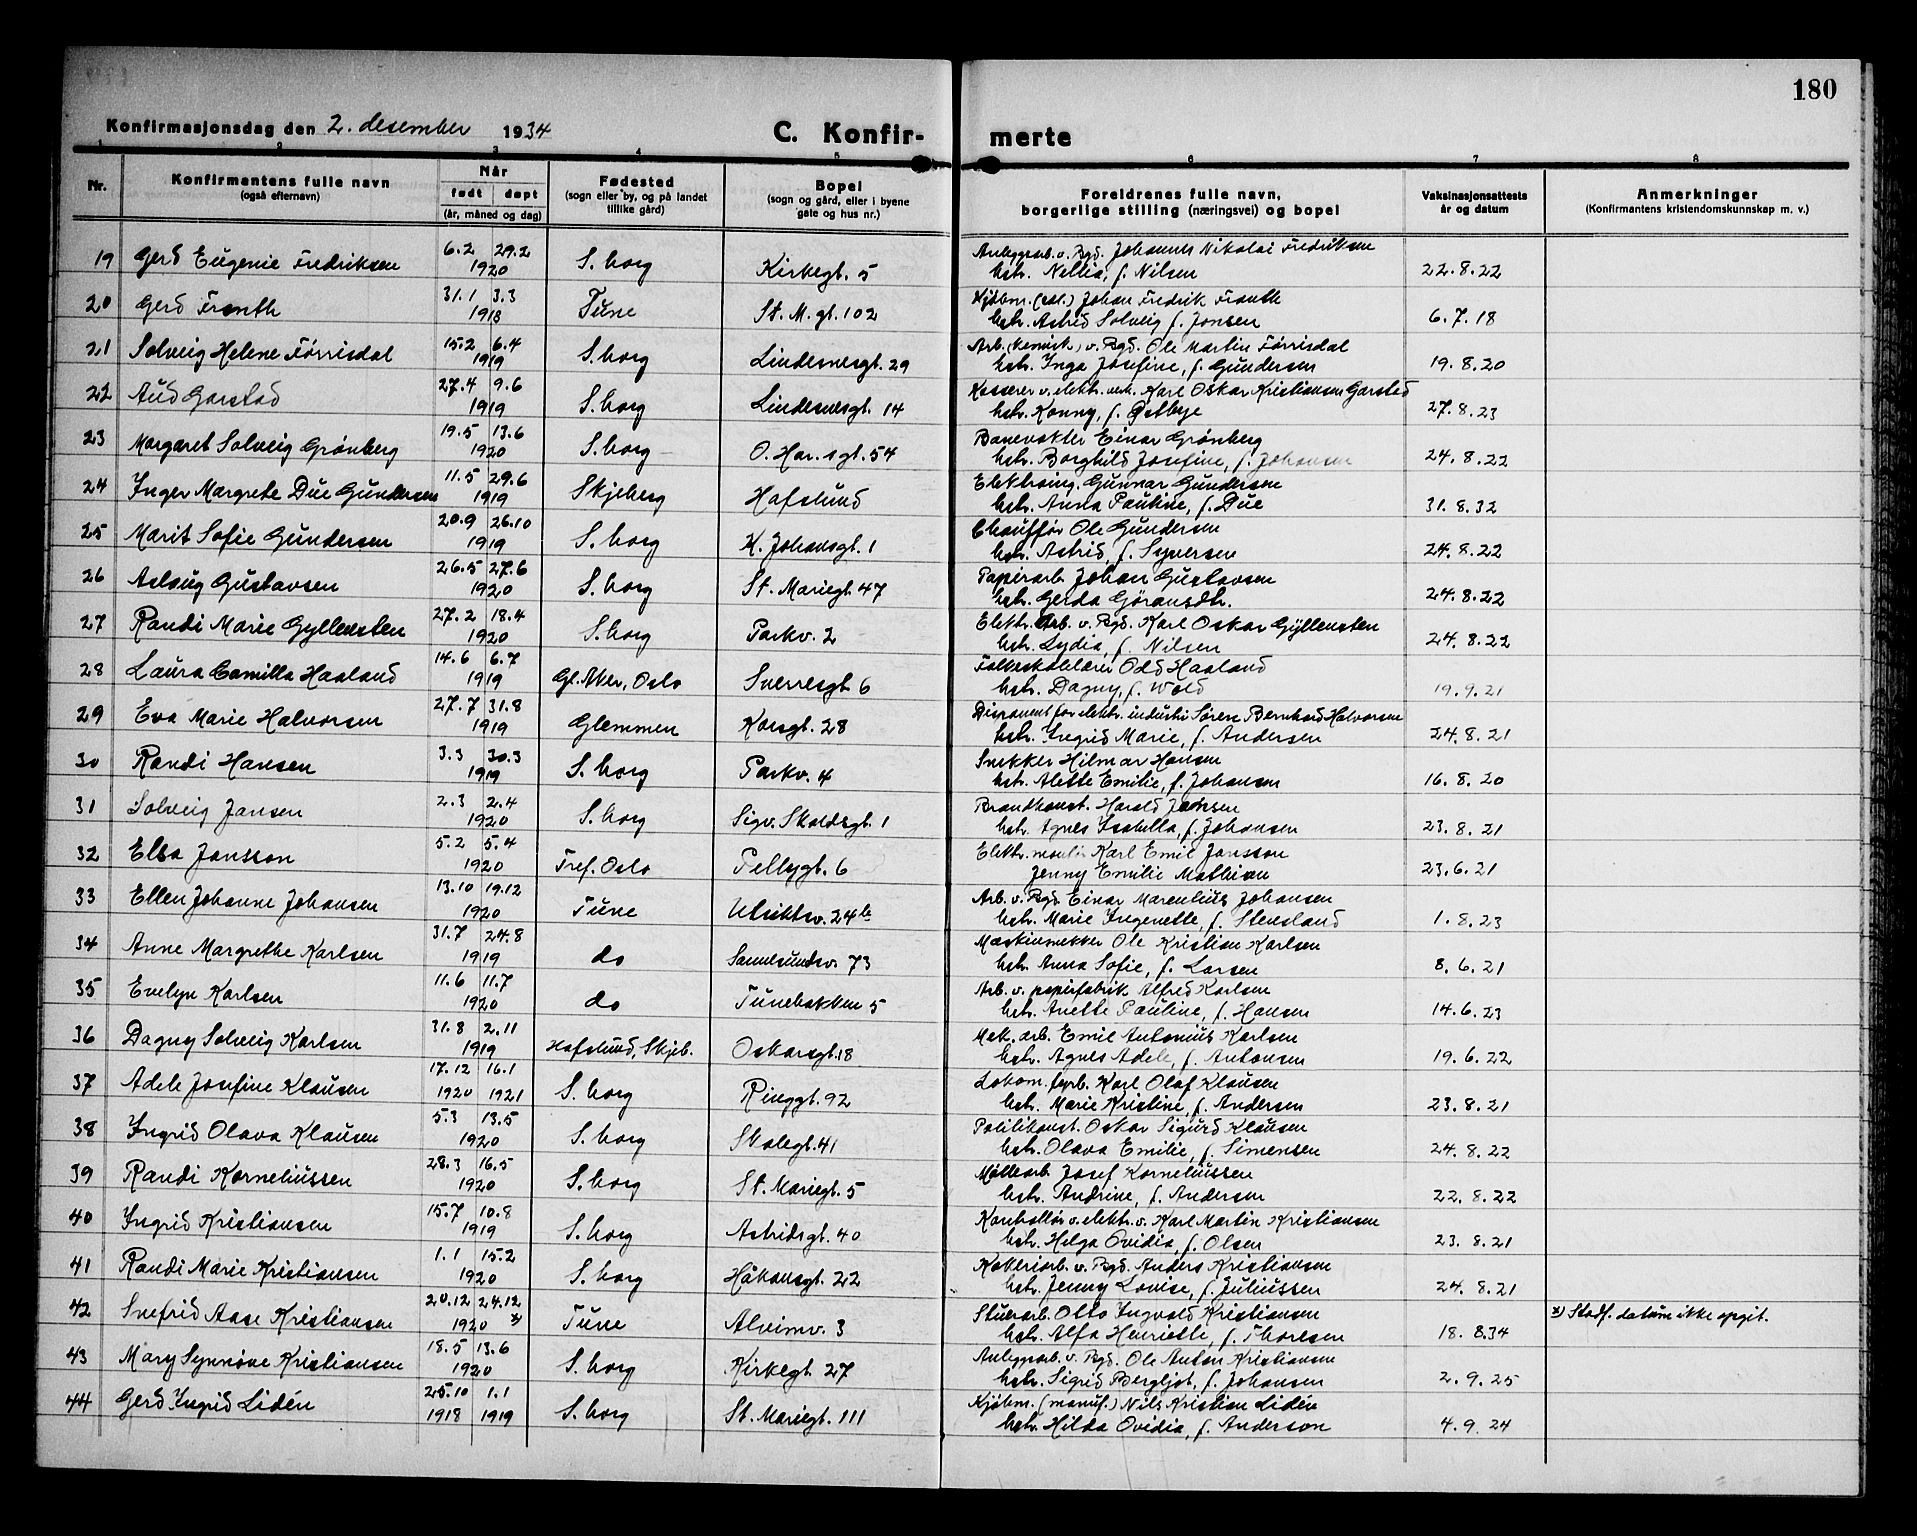 180
Konfirmasjonsdag den 2. desember 1934
C. Konfirmerte
1 2 3 4 5 6 7 8
Nr. Konfirmantens fulle navn (også efternavn) Når født døpt (år, måned og dag) Fødested (sogn eller by, og på landet tillike gård) Bopel (sogn og gård, eller i byene gate og hus nr.) Foreldrenes fulle navn, borgerlige stilling (næringsvei) og bopel Vaksinasjonsattests år og datum Anmerkninger (Konfirmantens kristendomskunnskap m. v.)
19 Gerd Eugenie Fredriksen 6.2 29.2 1920 S.borg Kirkegt. 5 Anleggsarb. v. Bgd. Johannes Nikolai Fredriksen
hstr. Nellia, f. Nilsen 22.8.22
20 Gerd Fronth 31.1 3.3 1918 Tune St. M. gt. 102 Kjøbm. (kol.) Johan Fredrik Fronth
hstr. Astrid Solveig f. Jonsen 6.7.18
21 Solveig Helene Førrisdal 15.2 6.4 1919 S.borg Lindesnesgt. 29 Arb. (kemisk.) v. Bgd. Ole Martin Førrisdal
hstr. Inga Josefine, f. Gundersen 19.8.20
22 Aud Garstad 27.4 9.6 1919 S.borg Lindesnesgt. 14 Kasserer v. elektr. verk. Karl Oskar Kristiansen Garstad
hstr. Konny, f. Østbye 27.8.23
23 Margaret Solveig Grønberg 19.5 13.6 1920 S.borg O. Har.sgt. 54 Banevokter Einar Grønberg
hstr. Borghild Josefine, f. Johansen 24.8.22
24 Inger Margrete Due Gundersen 11.5 29.6 1919 Skjeberg Hafslund Elektroing. Gunnar Gundersen
hstr. Anna Pauline, f. Due 31.8.32
25 Marit Sofie Gundersen 20.9 26.10 1919 S.borg K. Johansgt. 1 Chauffør Ole Gundersen
hstr. Astrid, f. Syversen 24.8.22
26 Aslaug Gustavsen 26.5 27.6 1920 S.borg St. Mariegt. 47 Papirarb. Johan Gustavsen
hstr. Gerda Göransdtr. 24.8.22
27 Randi Marie Gyllensten 27.2 18.4 1920 S.borg Parkv. 2 Elektr. Arb. v. Bgd. Karl Oskar Gyllensten
hstr. Lydia, f. Nilsen 24.8.22
28 Laura Camilla Haaland 14.6 6.7 1919 Gl. Aker, Oslo Sverresgt. 6 Folkeskolelærer Odd Haaland
hstr. Dagny, f. Wold 19.9.21
29 Eva Marie Halvorsen 27.7 31.8 1919 Glemmen Korsgt. 28 Disponent for elektr. industri Søren Bernhard Halvorsen
hstr. Ingrid Marie, f. Andersen 24.8.21
30 Randi Hansen 3.3 30.3 1919 S.borg Parkv. 4 Snekker Hilmar Hansen
hstr. Alette Emilie, f. Johansen 16.8.20
31 Solveig Jansen 2.3 2.4 1920 S.borg Sigv. Skaldsgt. 1 Brandkonst. Harald Jansen
hstr. Agnes Isabella, f. Johansen 23.8.21
32 Elsa Jansson 5.2 5.4 1920 Tref. Oslo Pellygt. 6 Elektr. montør Karl Emil Jansson
Jenny Emilie Mathisen 23.6.21
33 Ellen Johanne Johansen 13.10 19.12 1920 Tune Utsiktsv. 24b Arb. v. Bgd. Einar Marenhus Johansen
hstr. Marie Ingenette, f. Stensland 1.8.23
34 Anne Margrethe Karlsen 31.7 24.8 1919 do Sannesundsv. 73 Maskinsnekker Ole Kristian Karlsen
hstr. Anna Sofie, f. Larsen 8.6.21
35 Evelyn Karlsen 11.6 11.7 1920 do Tunebakken 5 Arb. v. papirfabrik Alfred Karlsen
hstr. Anette Pauline, f. Hansen 14.6.23
36 Dagny Solveig Karlsen 31.8 2.11 1919 Hafslund, Skjeb. Oskarsgt. 18 Mek. arb. Emil Antonius Karlsen
hstr. Agnes Adele, f. Antonsen 19.6.22
37 Adele Josefine Klausen 17.12 16.1 1920 1921 S.borg Ringgt. 92 Lokom. fyrb. Karl Olaf Klausen
hstr. Marie Kristine, f. Andersen 23.8.21
38 Ingrid Olava Klausen 5.3 13.5 1920 S.borg Skolegt. 41 Politikonst. Oskar Sigurd Klausen
hstr. Olava Emilie, f. Simensen 24.8.22
39 Randi Korneliussen 28.3 16.5 1920 S.borg St. Mariegt. 5 Møllearb. Josef Korneliussen
hstr. Andrine, f. Andersen 22.8.22
40 Ingrid Kristiansen 15.7 10.8 1919 S.borg Astridsgt. 40 Kontrollør v. elektr. v. Karl Martin Kristiansen
hstr. Helga Ovidia, f. Olsen 23.8.21
41 Randi Marie Kristiansen 1.1 15.2 1920 S.borg Håkonsgt. 22 Kokeriarb. v. Bgd. Anders Kristiansen
hstr. Jenny Lovise, f. Juliussen 24.8.21
42 Snefrid Aase Kristiansen 20.12 24.12 1920 *) Tune Alveimv. 3 Stuerarb. Otto Ingvald Kristiansen *) Stadf. datum ikke opgit.
hstr. Alfa Henriette, f. Thoresen 18.8.34
43 Mary Synnøve Kristiansen 18.5 13.6 1920 S.borg Kirkegt. 27 Anleggsarb. v. Bgd. Ole Anton Kristiansen
hstr. Sigrid Bergljot, f. Johansen 2.9.25
44 Gerd Ingrid Lidén 25.10 1.1 1918 1919 S.borg St. Mariegt. 111 Kjøbm. (manuf.) Nils Kristian Lidén
hstr. Hilda Ovidia, f. Anderson 4.9.24